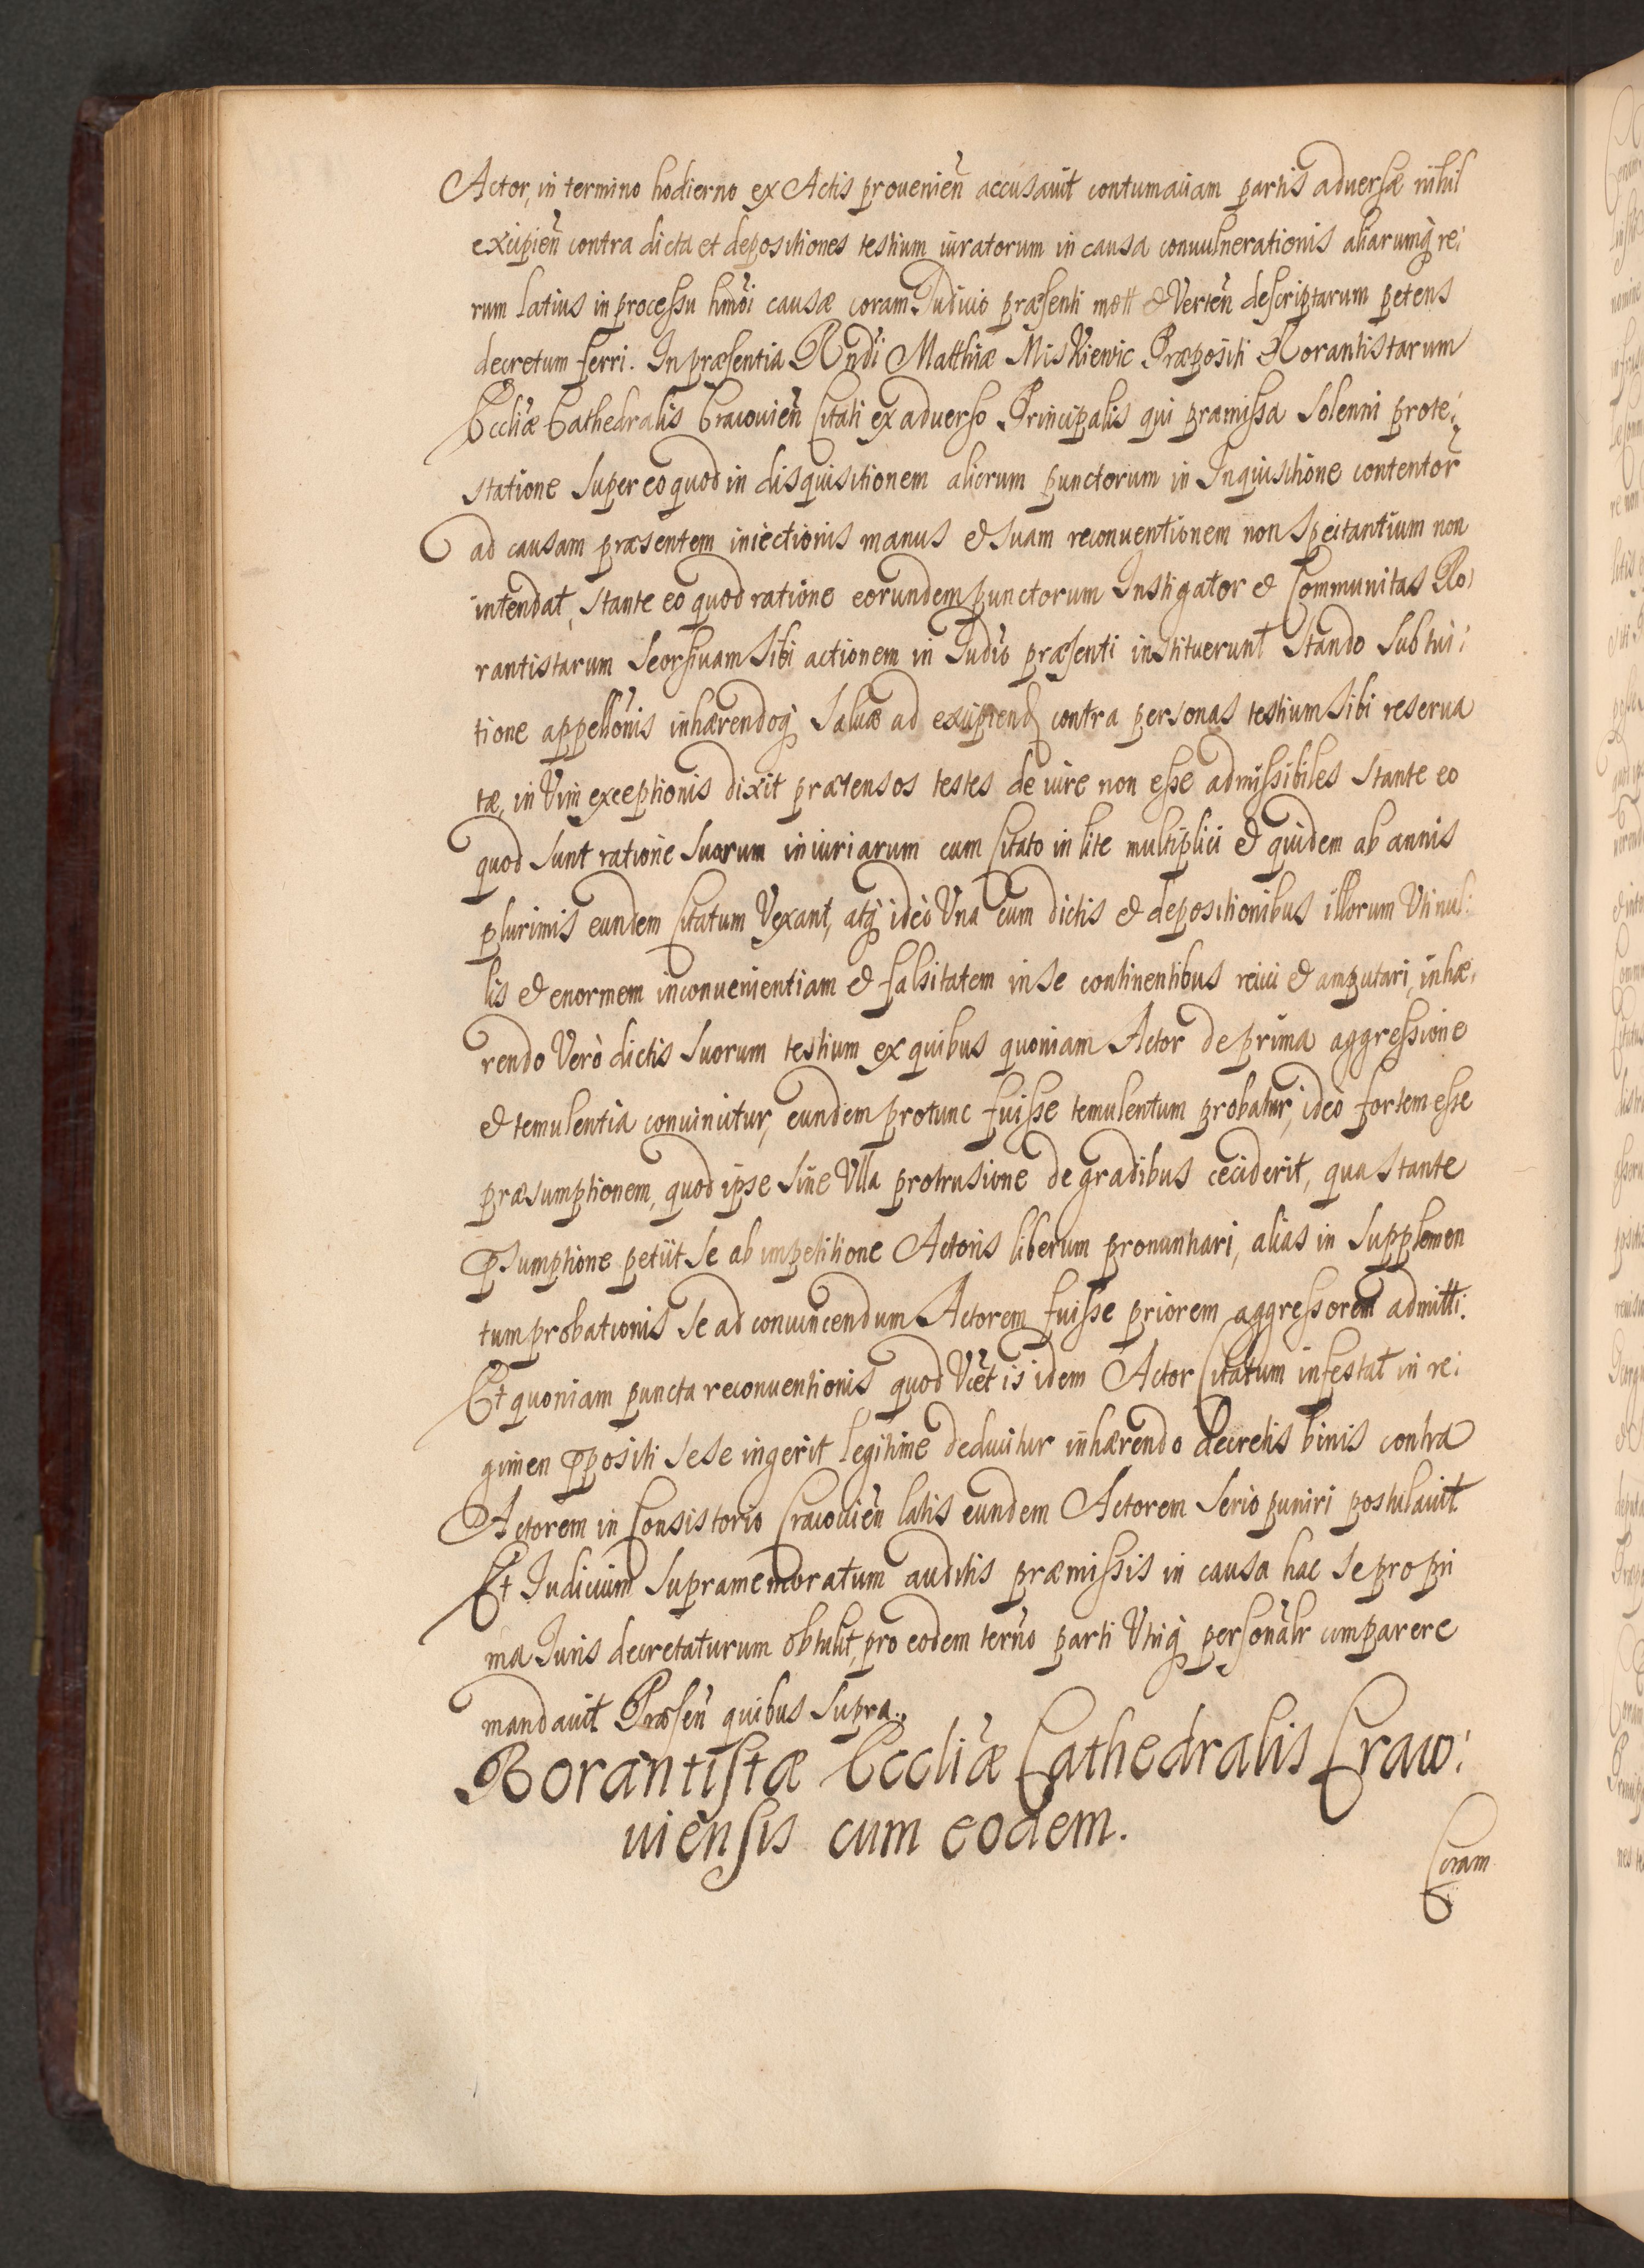 Actor, in termino hodierno ex Actis provenień accusauit contumaciam partis adversæ nihil
excipień contra dicta et depositiones testium iuratorum in causa convulnerationis aliarumq́ re:
rum latius in processu hmōi causæ coram Judicio præsenti mott et Verteń descriptarum petens
decretum ferri. In præsentia Rndi Matthiæ Miskiewic Præpositi Rorantistarum
Eccliæ Cathedralis Cracovień Citati ex adverso Principalis qui præmissa Solenni prote:
statione Super eo quod in disquisitionem aliorum punctorum in Inquisitione contentor
ad causam præsentem iniectionis manus et suam reconventionem non Spectantium non
intendat, Stante eo quod ratione eorundem punctorum Instigator et Communitas Ro:
rantistarum Seorsivam Sibi actionem in Judio præsenti instituerunt Stando Sub tui:
tione appellōnis inhærendoq́ Salvæ ad excipiend contra personas testium Sibi reserva
tæ, in Vim exceptionis dixit prætensos testes de iure non esse admissibiles Stante eo
quod Sunt ratione Suorum iniuriarum cum Citato in lite multiplici et quidem ab annis
plurimis eundem Citatum Vexant, atq́ ideo Una cum dictis et depositionibus illorum Uti nul:
lis et enormem inconvenientiam et falsitatem in Se continentibus reiici et amputari, inhæ:
rendo Verò dictis Suorum testium ex quibus quoniam Actor de prima aggressione
et temulentia convincitur, eundem protunc fuisse temulentum probatur, ideò fortem esse
præsumptionem, quod ipse Sine Ulla protrusione de gradibus ceciderit, qua Stante
pSumptione petiit Se ab impetitione Actoris liberum pronuntiari, alias in Supplemen
tum probationis Se ad convincendum Actorem fuisse priorem aggressorem admitti.
Et quoniam puncta reconventionis quod Vcēt is idem Actor Citatum infestat in re:
gimen ppositi Sese ingerit legitime deducitur inhærendo decretis binis contra
Actorem in Consistorio Cracovień latis eundem Actorem Serio puniri postulavit
Et Judicium Supramemoratum auditis præmissis in causa hac Se pro pri
ma Juris decretaturum obtulit, pro eodem terno parti Utriq́ personalr comparere
mandavit Præseń quibus Supra.
Rorantistæ Eccliæ Cathedralis Craco:
viensis cum eodem.
Coram